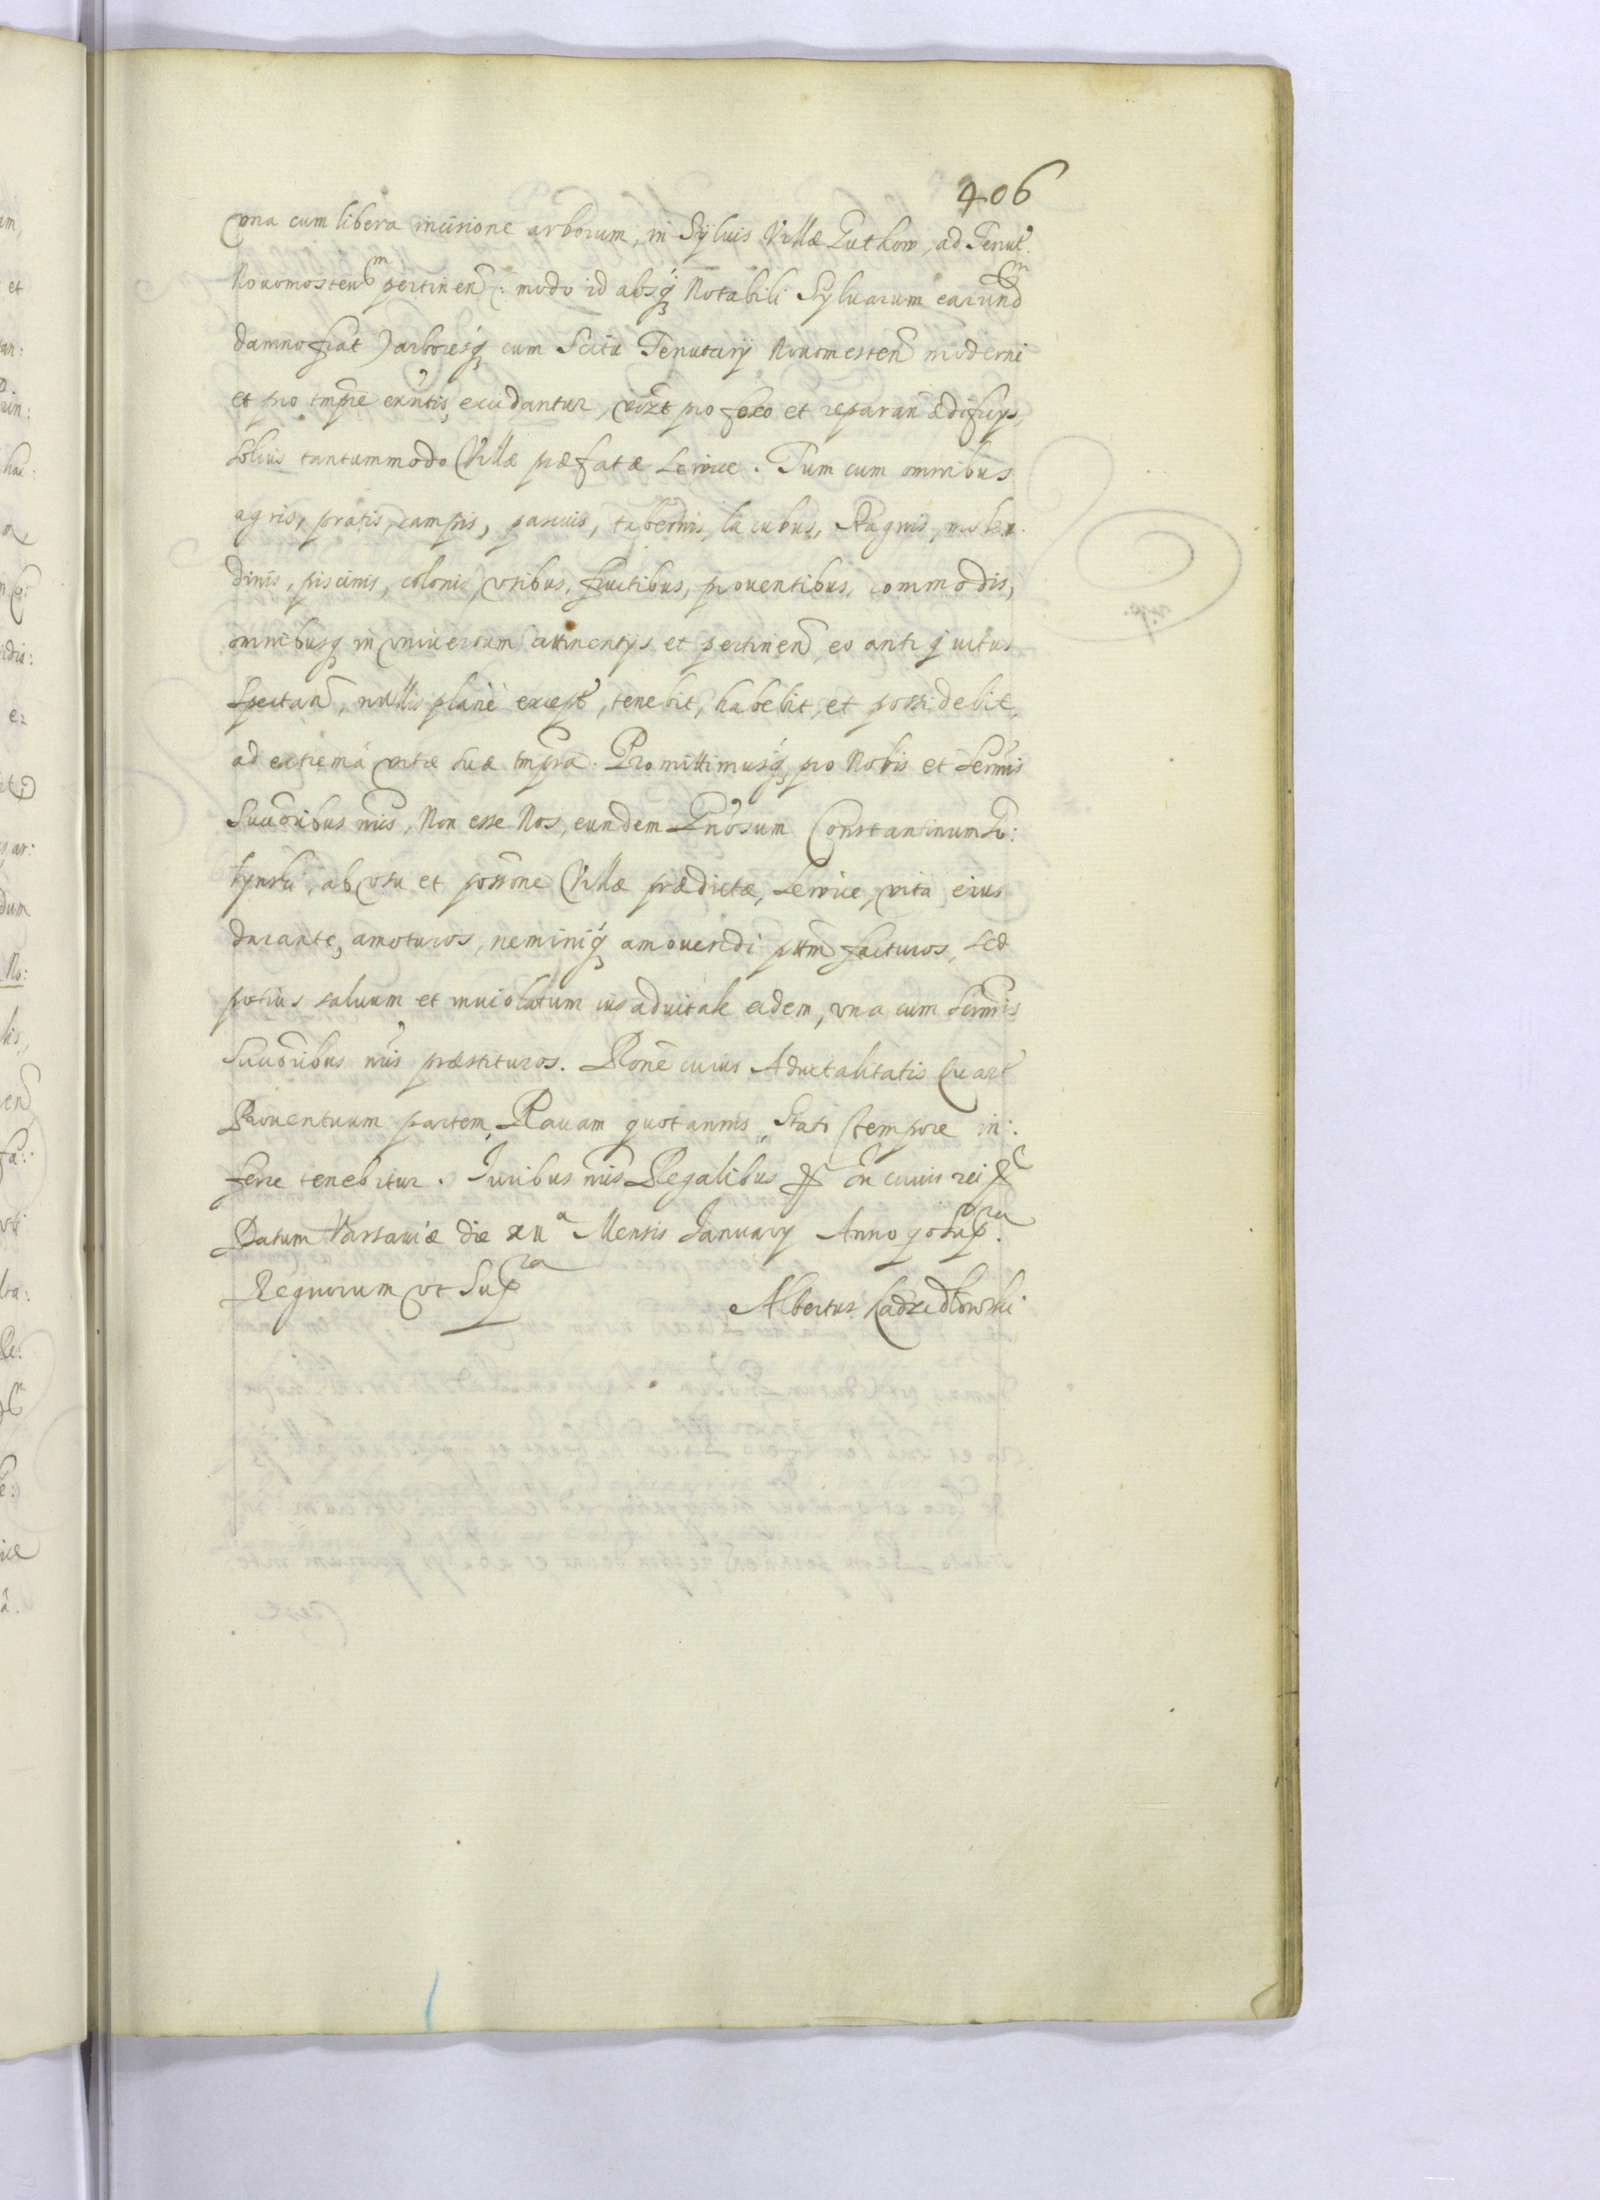 406
vna cum libera incisione arborum, in Syluis Villæ Gutkow, ad Tenut.
Nouomosten̄ pertinen̄: modo id absq́ Notabili Syluarum earund̄
damno fiat) arboresq́ cum Scitu Tenutarij Nouomesten̄ moderni
et pro tmp̄re exn̄tis, excidantur, vizt pro foco et reparan̄ ædificijs,
solius tantummodo Villæ præfatæ Lewice. Tum cum omnibus
agris, pratis, campis, pascuis, tabernis, lacubus, stagnis, molen-
dinis, piscinis, colonis, vsibus, fructibus, prouentibus, commodis,
omnibusq́ in vniuersum attinentijs et pertinen̄ eo antiquitus
spectan̄, nullis planè except̄, tenebit, habebit, et possidebit,
ad extrema vitæ suæ tmp̄ra. Promittimusq́, pro Nobis et Serm̄is
Succ̄oribus nr̄is, Non esse Nos, eundem Gn̄osum Constantinum
ab vsu et poss̄one Villæ prædictæ, Lewice, vita eius
durante, amoturos, neminiq́ amouendi ptt̄m facturos, sed
potius saluum et inuiolatum ius aduitale eidem, vna cum Serm̄is
Succ̄oribus nr̄is præstituros. Rōne cuius Aduitalitatis Quart̄
Prouentuum partem, Rauam quotannis, Stato tempore in:
ferre tenebitur. Iuribus nr̄is Regalibus In cuius rei
Datum Varsauiæ die XII a Mensis Ianuarij Anno quo sup ra.
Regnorum vt Sup ra
Albertus Kadzidłowski